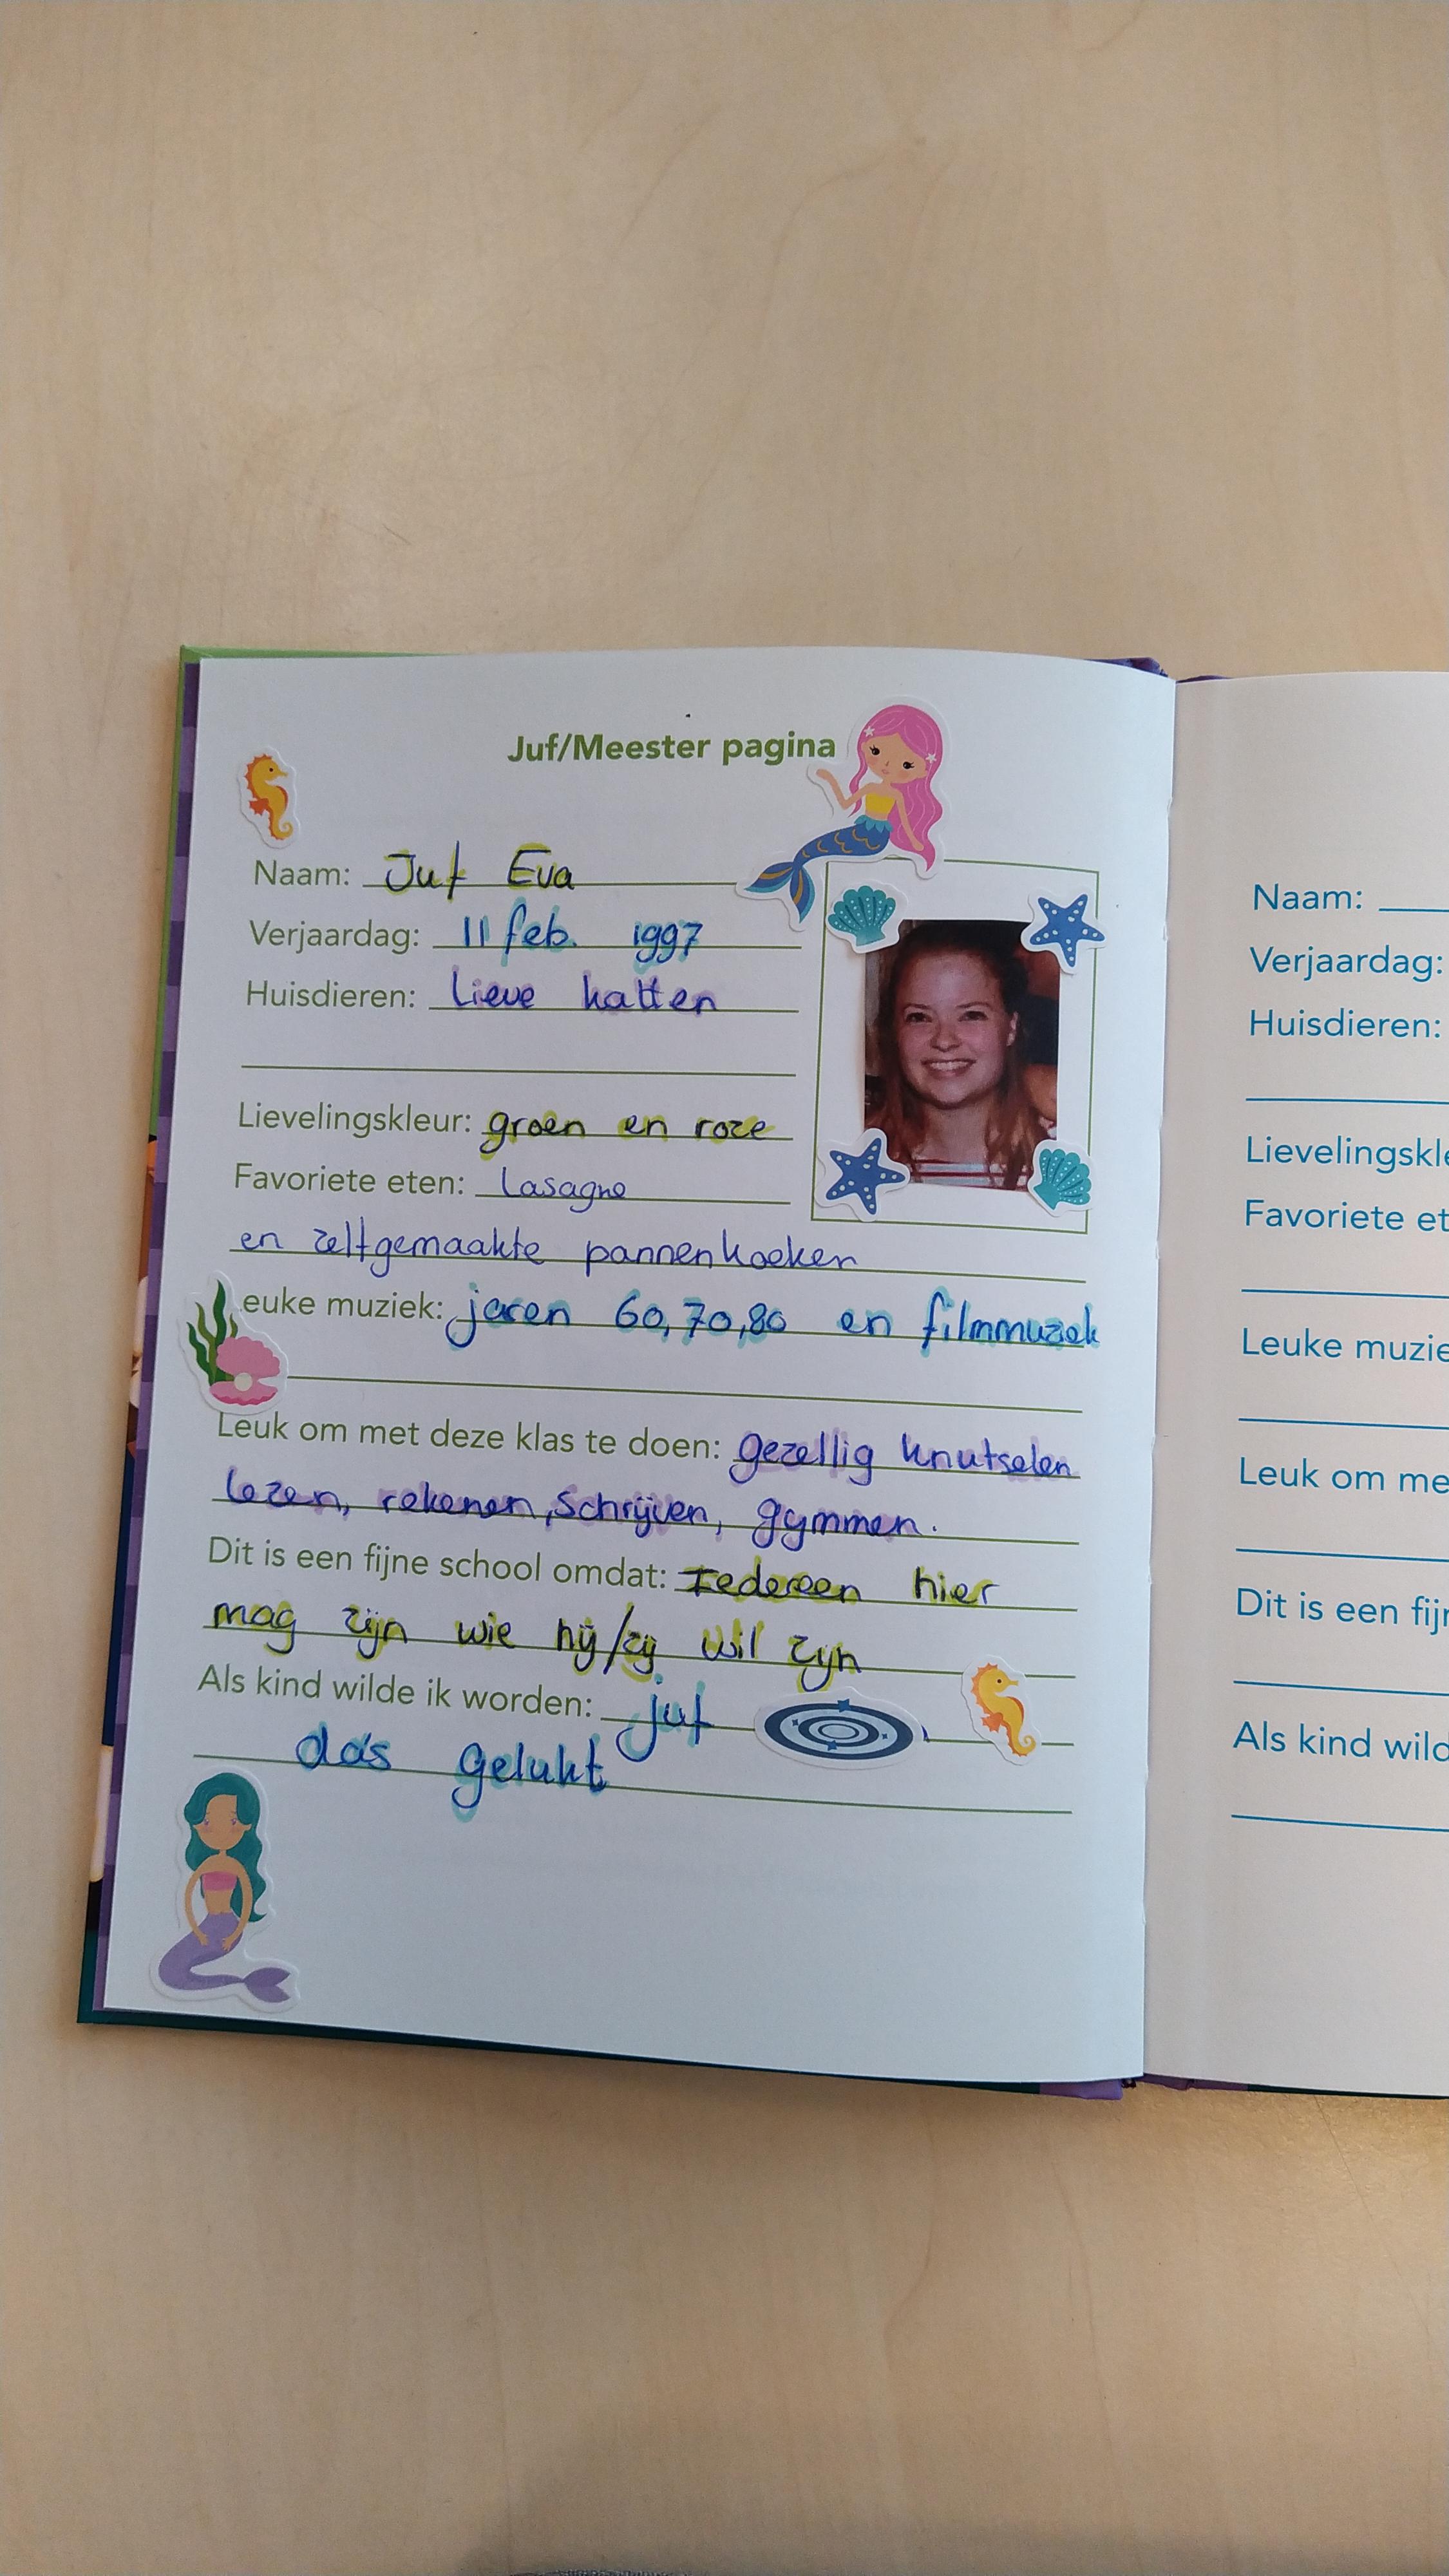 Juf/Meester pagina
Naam: Juf Eva
Verjaardag: 11 feb. 1997
Huisdieren: Lieve katten
Lievelingskleur: groen en roze
Favoriete eten: Lasagne
en zelfgemaakte pannenkoeken
euke muziek: jaren 60, 70, 80 en filmmuziek
Leuk om met deze klas te doen: gezellig knutselen
lezen, rekenen, schrijven, gymmen.
Dit is een fijne school omdat: Iedereen hier
mag zijn wie hij/zij wil zijn
Als kind wilde ik worden: juf
da's gelukt
Naam:
Verjaardag:
Huisdieren:
Lievelingskle
Favoriete et
Leuke muzie
Leuk om me
Dit is een fijn
Als kind wild